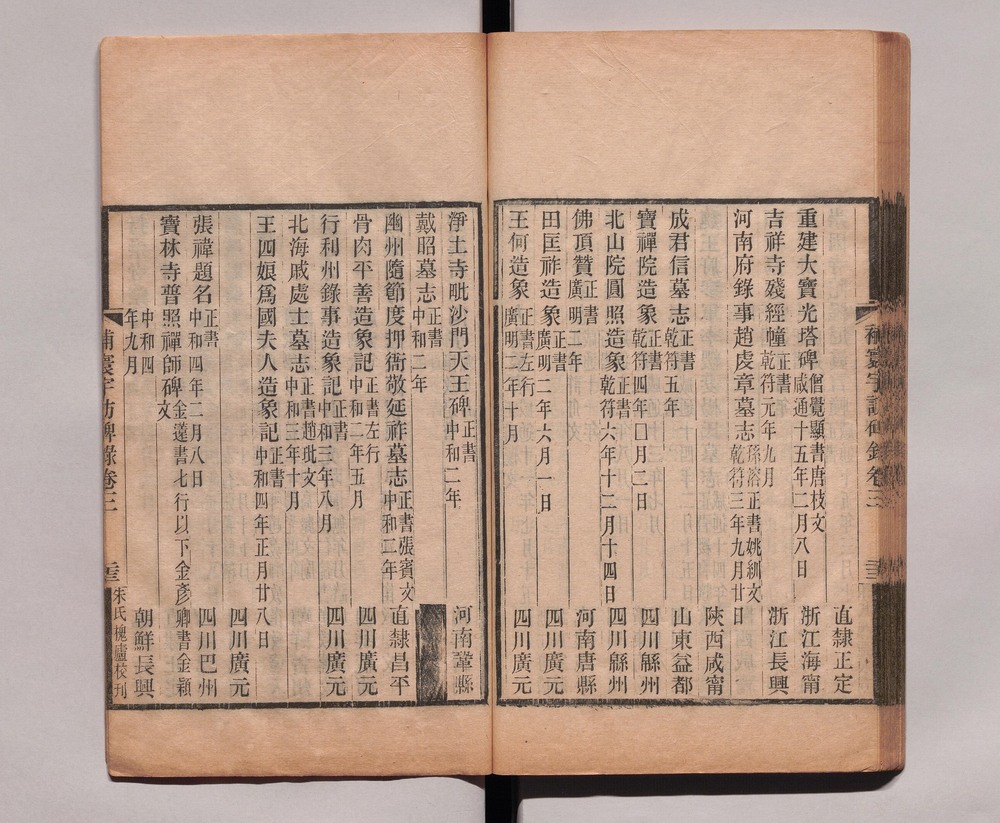 重建大寶光塔碑 僧覺顯書唐枝文 咸通十五年二月八日 直隸正定
吉祥寺殘經幢 正書 乾符元年九月 浙江海甯
河南府錄事趙虔章墓志 孫溶正書姚紃文 乾符三年九月廿日 浙江長興
陝西咸甯
成君信墓志 正書 乾符五年 山東益都
寶禪院造象 正書 乾符四年口月二日 四川緜州
北山院圓照造象 乾符六年十二月十四日 四川緜州
佛頂贊 正書 廣明二年 河南唐縣
田匡祚造象 正書 廣明二年六月一日 四川廣元
王何造象 正書左行 廣明二年十月 四川廣元
補寰宇訪碑錄卷三
淨土寺毗沙門天王碑 正書 中和二年 河南鞏縣
戴昭墓志 正書 中和二年
幽州隨節度押衙敬延祚墓志 正書張賓文 中和二年 直隸昌平
骨肉平善造象記 正書左行 中和二年五月 四川廣元
行利州錄事造象記 正書 中和三年八月 四川廣元
北海戚處士墓志 正書趙玭文 中和三年十月
王四娘爲國夫人造象記 正書 中和四年正月廿八日
四川廣元
張禕題名 正書 中和四年二月八日 四川巴州
寶林寺普照禪師碑 金薳書七行以下金彥卿書金穎文
中和四年九月 朝鮮長興
補寰宇訪碑錄卷三 三 朱氏槐廬校刊